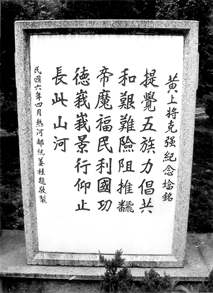 黃上將克強紀念塔銘
提覺五族力倡共
和艱難險阻推飜
帝魔福民利國功
德峩峩景行仰止
長此山河
民國六年四月熱河都統姜桂題敬製